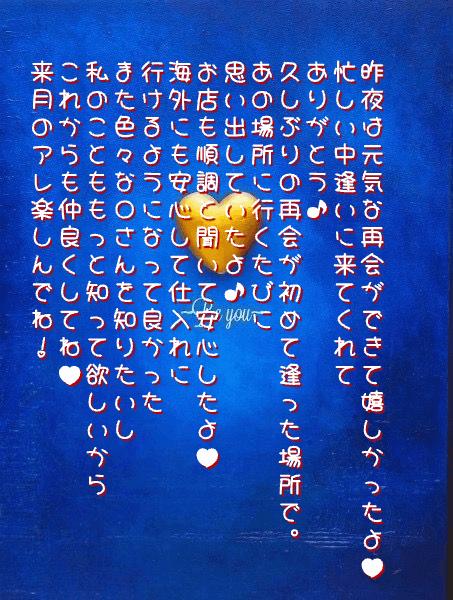 昨夜は元気な再会ができて嬉しかったよ♥
忙しい中逢いに来てくれて
ありがとう♪
久しぶりの再会が初めて逢った場所で。
あの場所に行くたびに
思い出していたよ♪
お店も順調と聞いて安心したよ♥
海外にも安心して仕入れに
行けるようになって良かった
また色々な〇さんを知りたいし
私のことももっと知って欲しいから
これからも仲良くしてね♥
来月のアレ楽しんでね!
you~